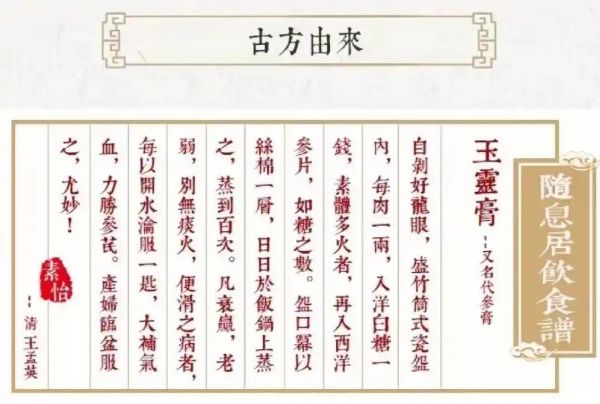 古方由來
隨息居飲食譜
玉靈膏--又名代參膏
自剝好龍眼，盛竹筒式瓷碗
內，每肉一兩，入洋白糖一
錢，素體多火者，再入西洋
參片，如糖之數。碗口冪以
絲棉一層，日日於飯鍋上蒸
之，蒸到百次。凡衰羸，老
弱，別無痰火，便滑之病者，
每以開水瀹服一匙，大補氣
血，力勝參芪。產婦臨盆服
之，尤妙！
素怡
--清 王孟英